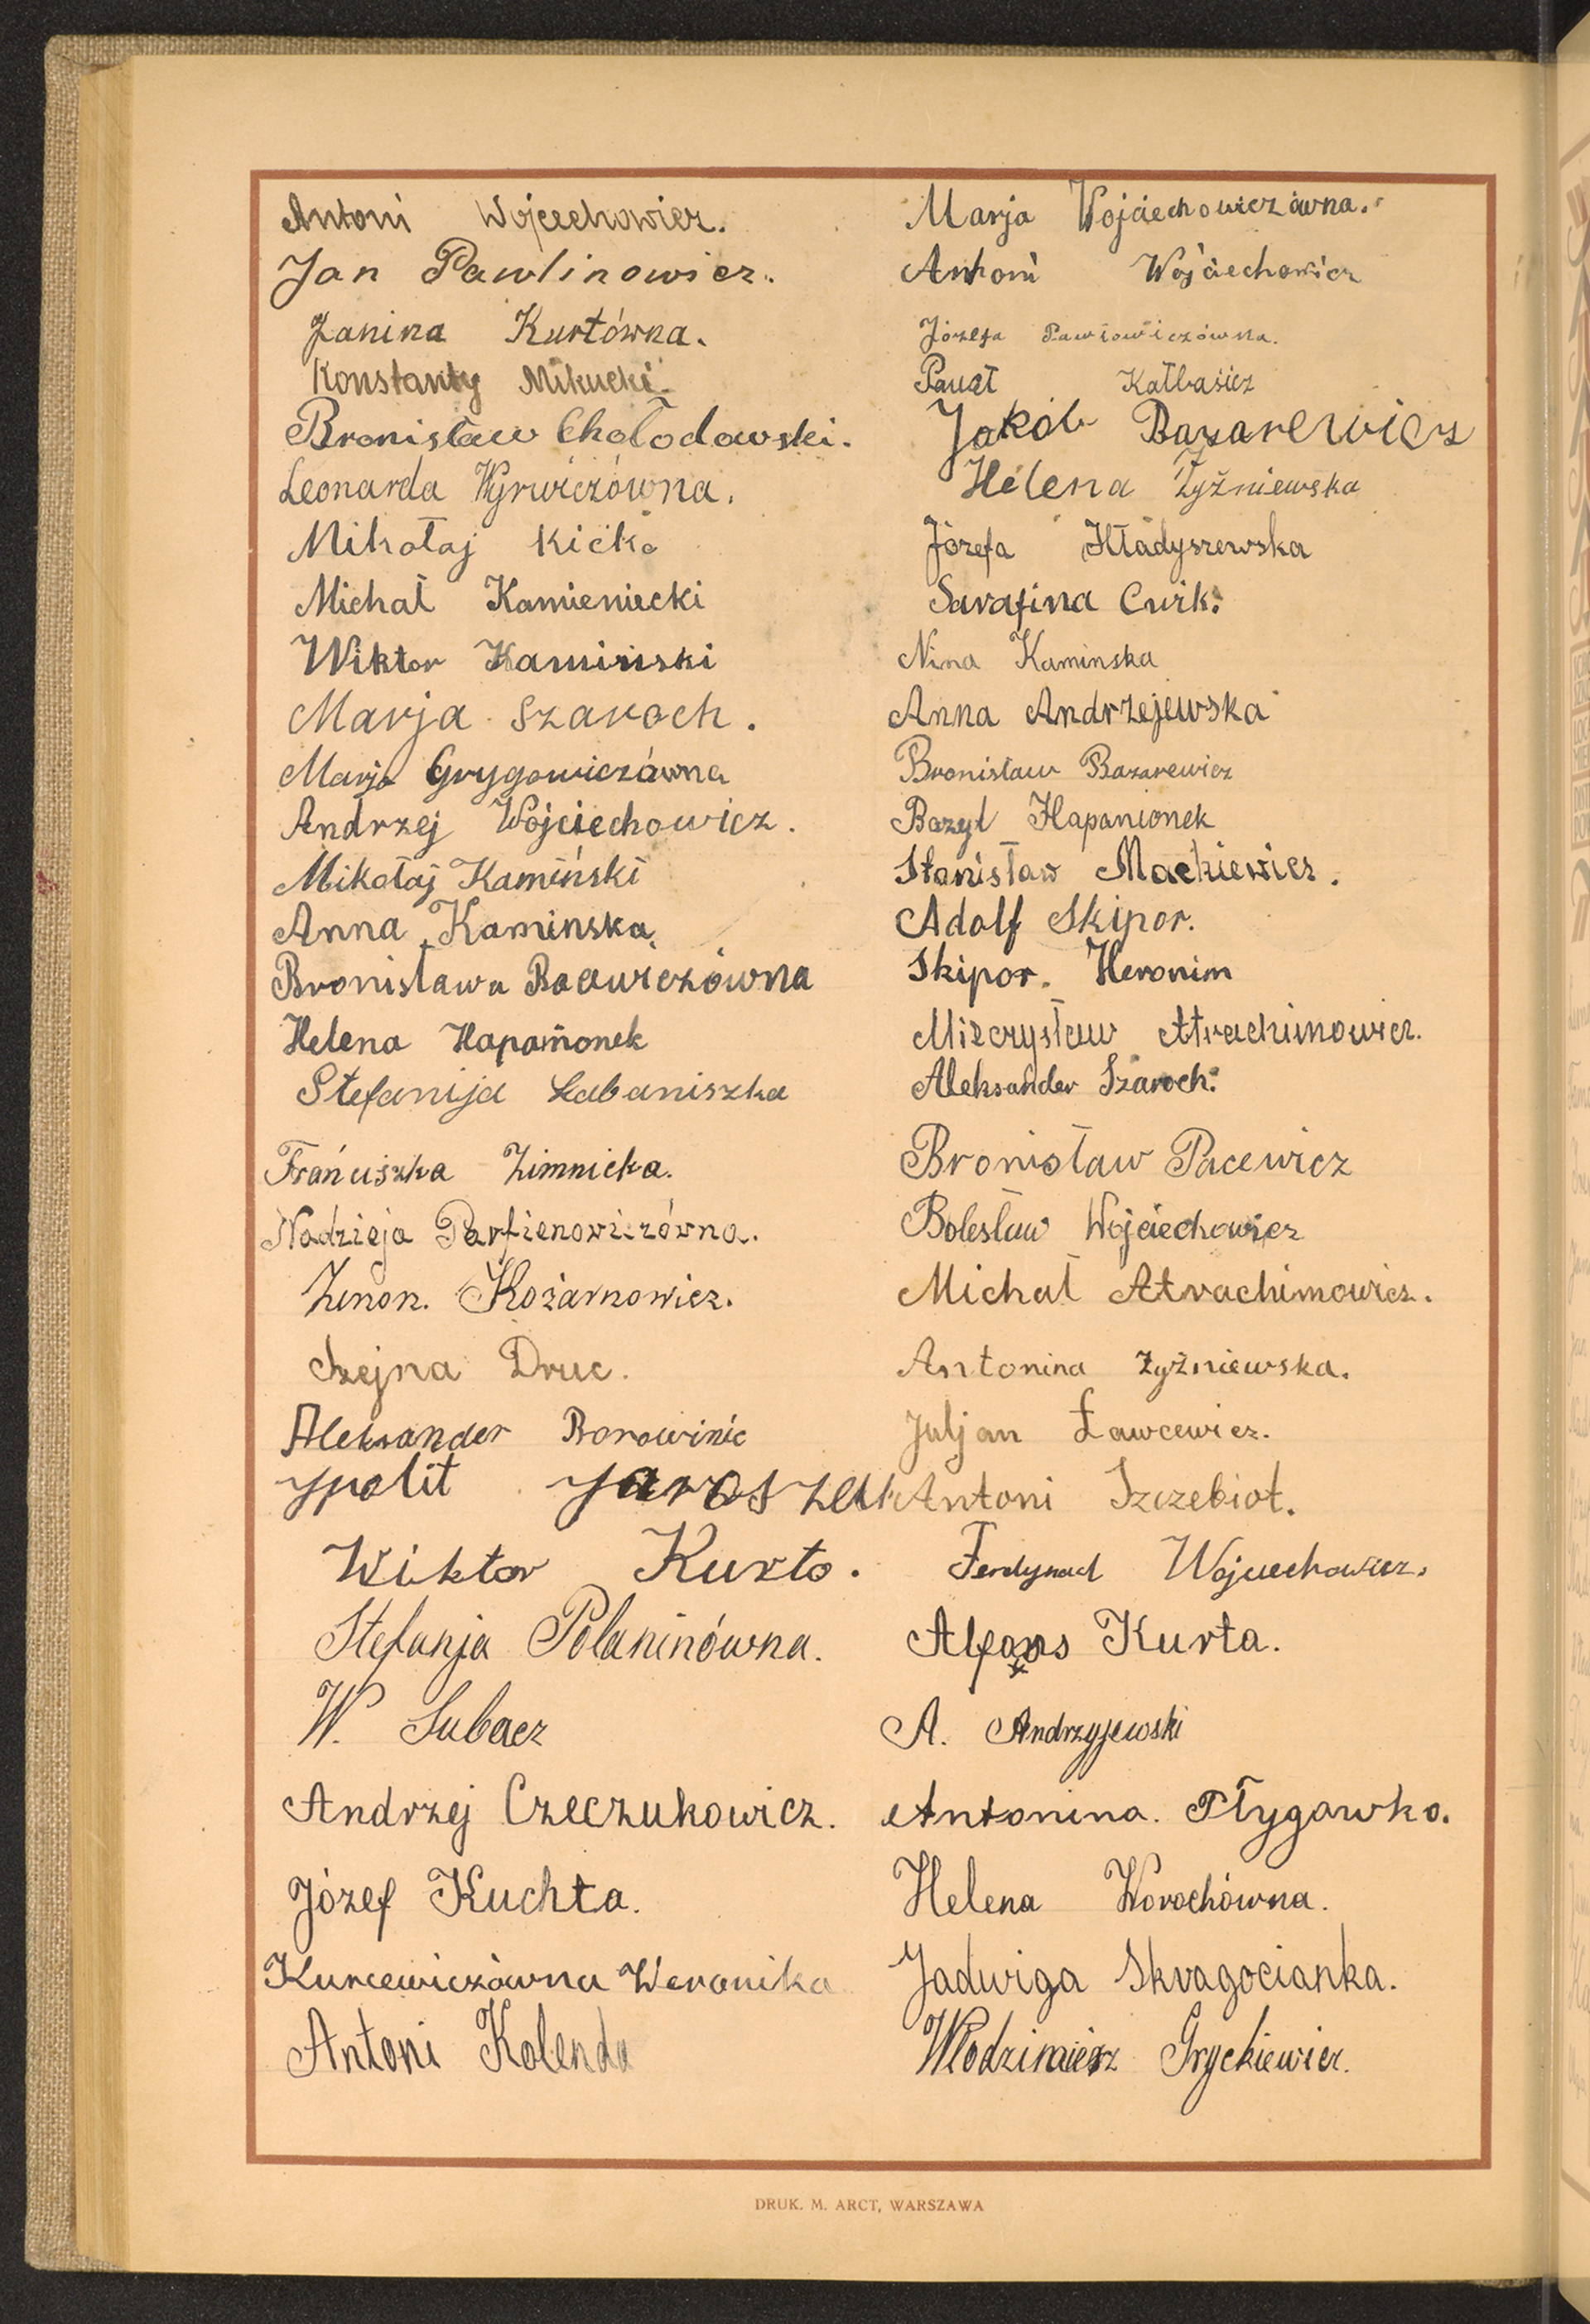 Antoni Wojciechowicz.
Jan Pawlinowicz.
Janina Kurtówna.
Konstanty Mikucki.
Bronisław Chołodowski.
Leonarda Wyrwiczówna.
Mikołaj Kićko
Michał Kamieniecki
Wiktor Kamiński
Marja Szaroch.
Marja Grygowiczówna
Andrzej Wojciechowicz.
Mikołaj Kamiński
Anna Kaminska
Bronisława Bacwiczówna
Helena Hapanionek
Stefanija Łabaniszka
Frańciszka Zimnicka.
Nadzieja Parfienowiczówna.
Zenon. Kożarnowicz.
Szejna Druc.
Aleksander Borowinic
Ypolit Jaroszak
Wiktor Kurto.
Stefanja Polaninówna.
W. Subacz
Andrzej Czeczukowicz.
Józef Kuchta.
Kurcewiczówna Weronika
Antoni Kolenda
Marja Wojciechowiczówna.
Antoni Wojciechowicz
Józefa Pawłowiczówna.
Paweł Kołbasicz
Jakób Bazarewicz
Helena Żyżniewska
Józefa Hładyszewska
Sarafina Cwik.
Nina Kaminska
Anna Andrzejewska
Bronisław Bazarewicz
Bazyl Hapanionek
Stanisław Mackiewicz.
Adolf Skipor.
Skipor. Heronim
Mieczysław Atrachimowicz.
Aleksander Szaroch.
Bronisław Pacewicz
Bolesław Wojciechowicz
Michał Atrachimowicz.
Antonina Żyżniewska.
Juljan Ławcewicz.
Antoni Szczebiot.
Ferdynad Wojciechowicz.
Alfons Kurta.
A. Andrzyjewski
Antonina. Pływgawko.
Helena Worochówna.
Jadwiga Skragocianka.
Włodzimierz Gryckiewicz.
DRUK. M. ARCT, WARSZAWA